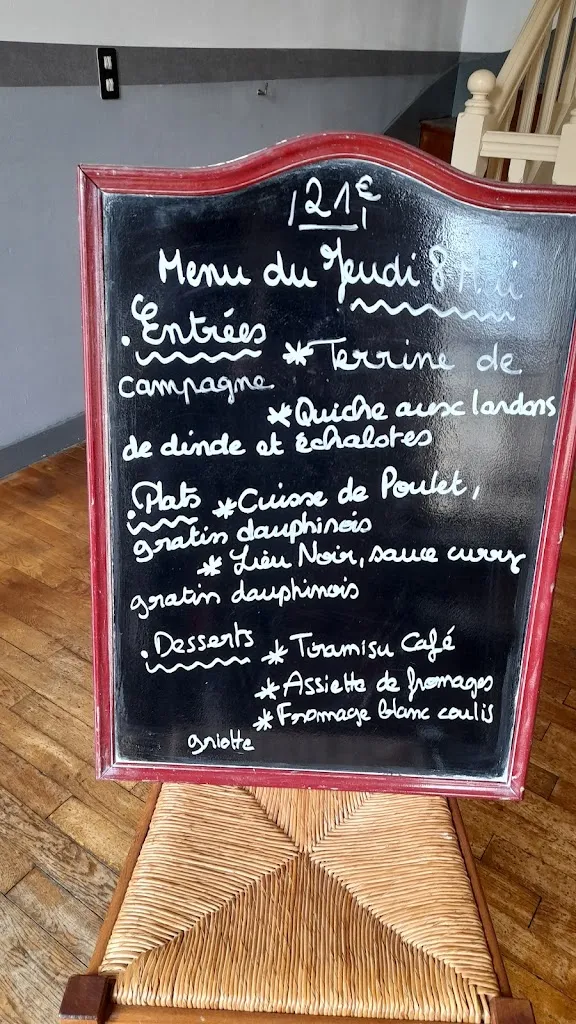 21€
Menu du Jeudi 8 Mai
. Entrées * Terrine de
campagne
* Quiche aux lardons
de dinde et échalotes
. Plats * Cuisse de Poulet,
gratin dauphinois
* Lieu Noir, sauce curry
gratin dauphinois
. Desserts * Tiramisu Café
* Assiette de fromages
* Fromage blanc coulis
griotte